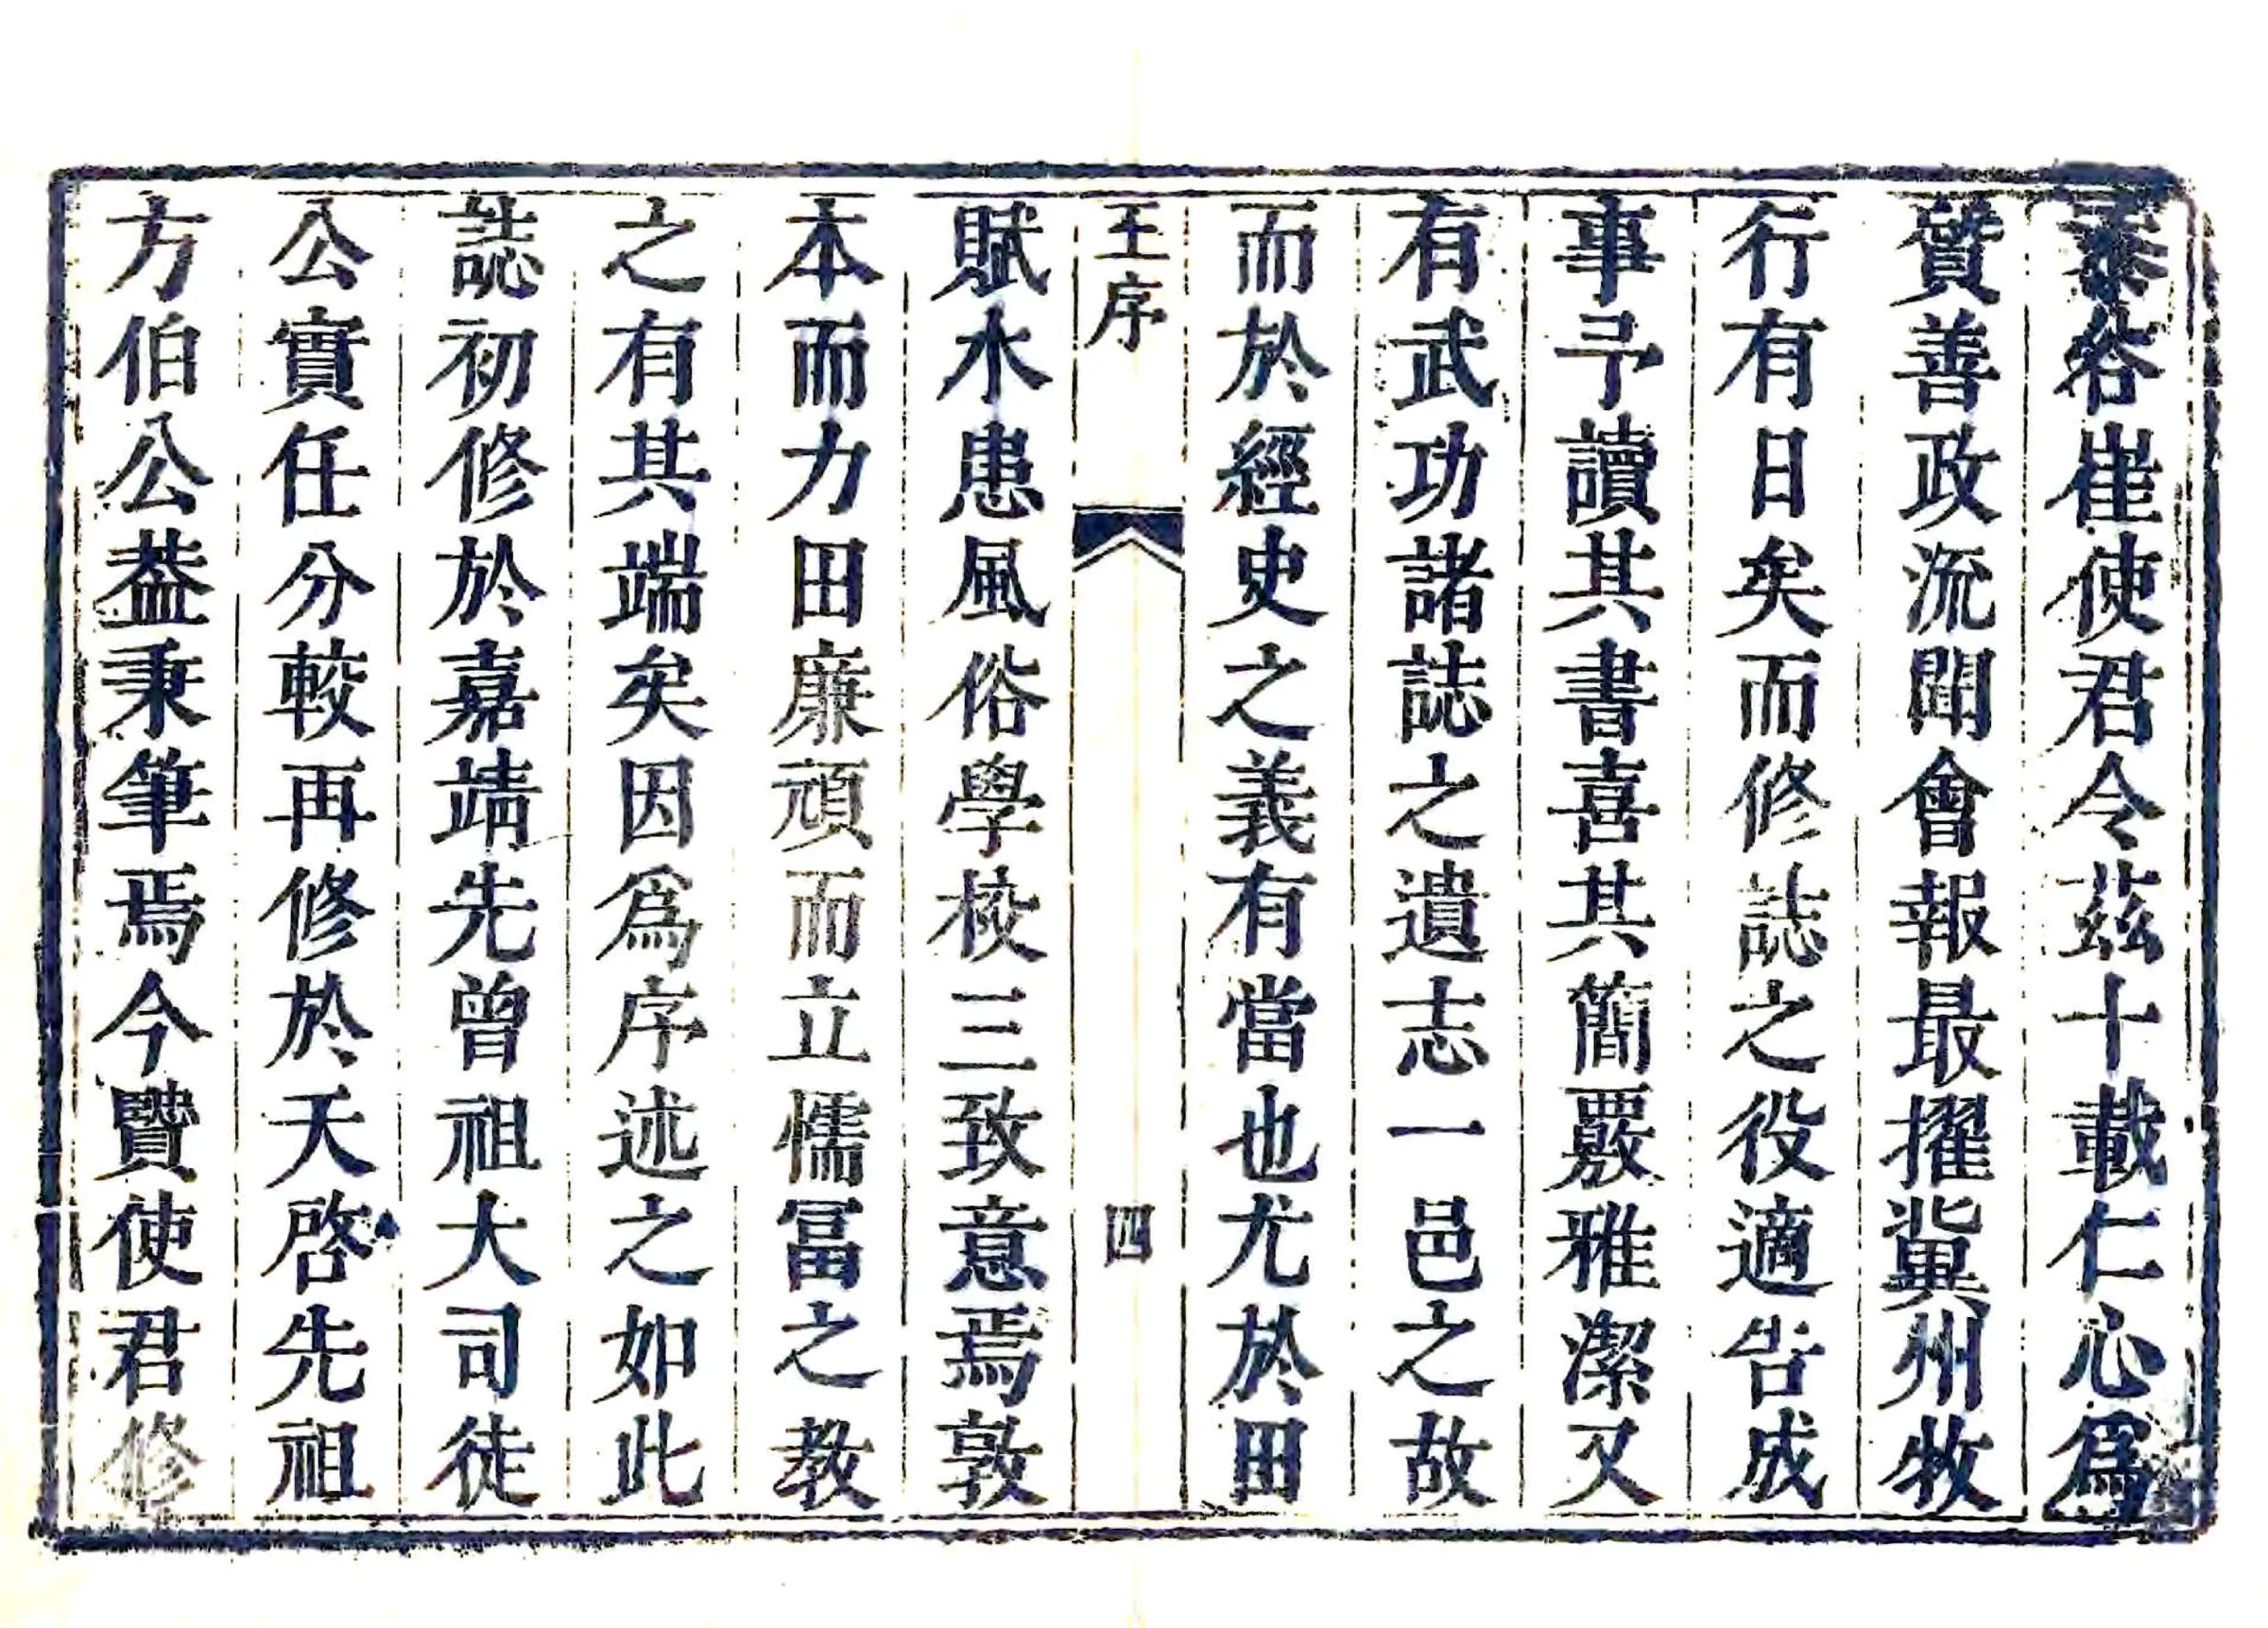 黍谷崔使君令茲十載仁心爲
質善政流聞會報最擢冀州牧
行有日矣而修誌之役適告成
事予讀其書喜其簡覈雅潔又
有武功諸誌之遺志一邑之故
而於經史之義有當也尤於田
王序 四
賦水患風俗學校三致意焉敦
本而力田廉頑而立懦冨之教
之有其端矣因爲序述之如此
誌初修於嘉靖先曾祖大司徒
公實任分較再修於天啓先祖
方伯公葢秉筆焉今贒使君修